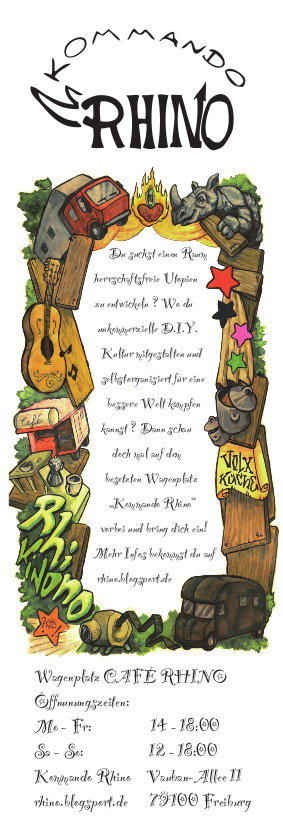 KOMMANDO
RHINO
Du suchst einen Raum
herrschaftsfreie Utopien
zu entwickeln ? Wo du
unkommerzielle D.I.Y.
Kultur mitgestalten und
selbstorganisiert für eine
bessere Welt kämpfen
kannst ? Dann schau
doch mal auf dem
besetzten Wagenplatz
„Kommando Rhino“
vorbei und bring dich ein!
Mehr Infos bekommst du auf
rhino.blogsport.de
Café
VoLX
KÜCHE
Rhi
KINO
Wagenplatz CAFÉ RHINO
Öffnunungszeiten:
Mo - Fr: 14 - 18:00
Sa - So: 12 - 18:00
Kommando Rhino Vauban-Allee 11
rhino.blogsport.de 79100 Freiburg